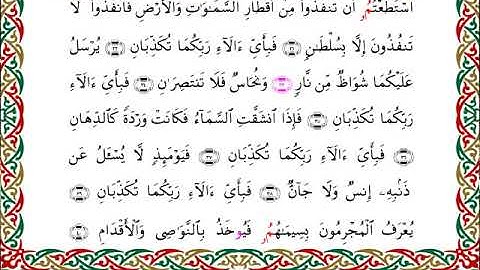 اسْتَطَعْتُمُۥ أَن تَنفُذُوا۟ مِنْ أَقْطَارِ السَّمَٰوَٰتِ وَالْأَرْضِ فَانفُذُوا۟ لَا
تَنفُذُونَ إِلَّا بِسُلْطَٰنٍ فَبِأَيِّ ءَالَآءِ رَبِّكُمَا تُكَذِّبَانِ يُرْسَلُ
عَلَيْكُمَا شُوَاظٌ مِّن نَّارٍ وَنُحَاسٌ فَلَا تَنتَصِرَانِ فَبِأَيِّ ءَالَآءِ
رَبِّكُمَا تُكَذِّبَانِ فَإِذَا انشَقَّتِ السَّمَآءُ فَكَانَتْ وَرْدَةً كَالدِّهَانِ
فَبِأَيِّ ءَالَآءِ رَبِّكُمَا تُكَذِّبَانِ فَيَوْمَئِذٍ لَّا يُسْـَٔلُ عَن
ذَنۢبِهِۦ إِنسٌ وَلَا جَآنٌّ فَبِأَيِّ ءَالَآءِ رَبِّكُمَا تُكَذِّبَانِ
يُعْرَفُ الْمُجْرِمُونَ بِسِيمَٰهُمُۥ فَيُوخَذُ بِالنَّوَٰصِي وَالْأَقْدَامِ